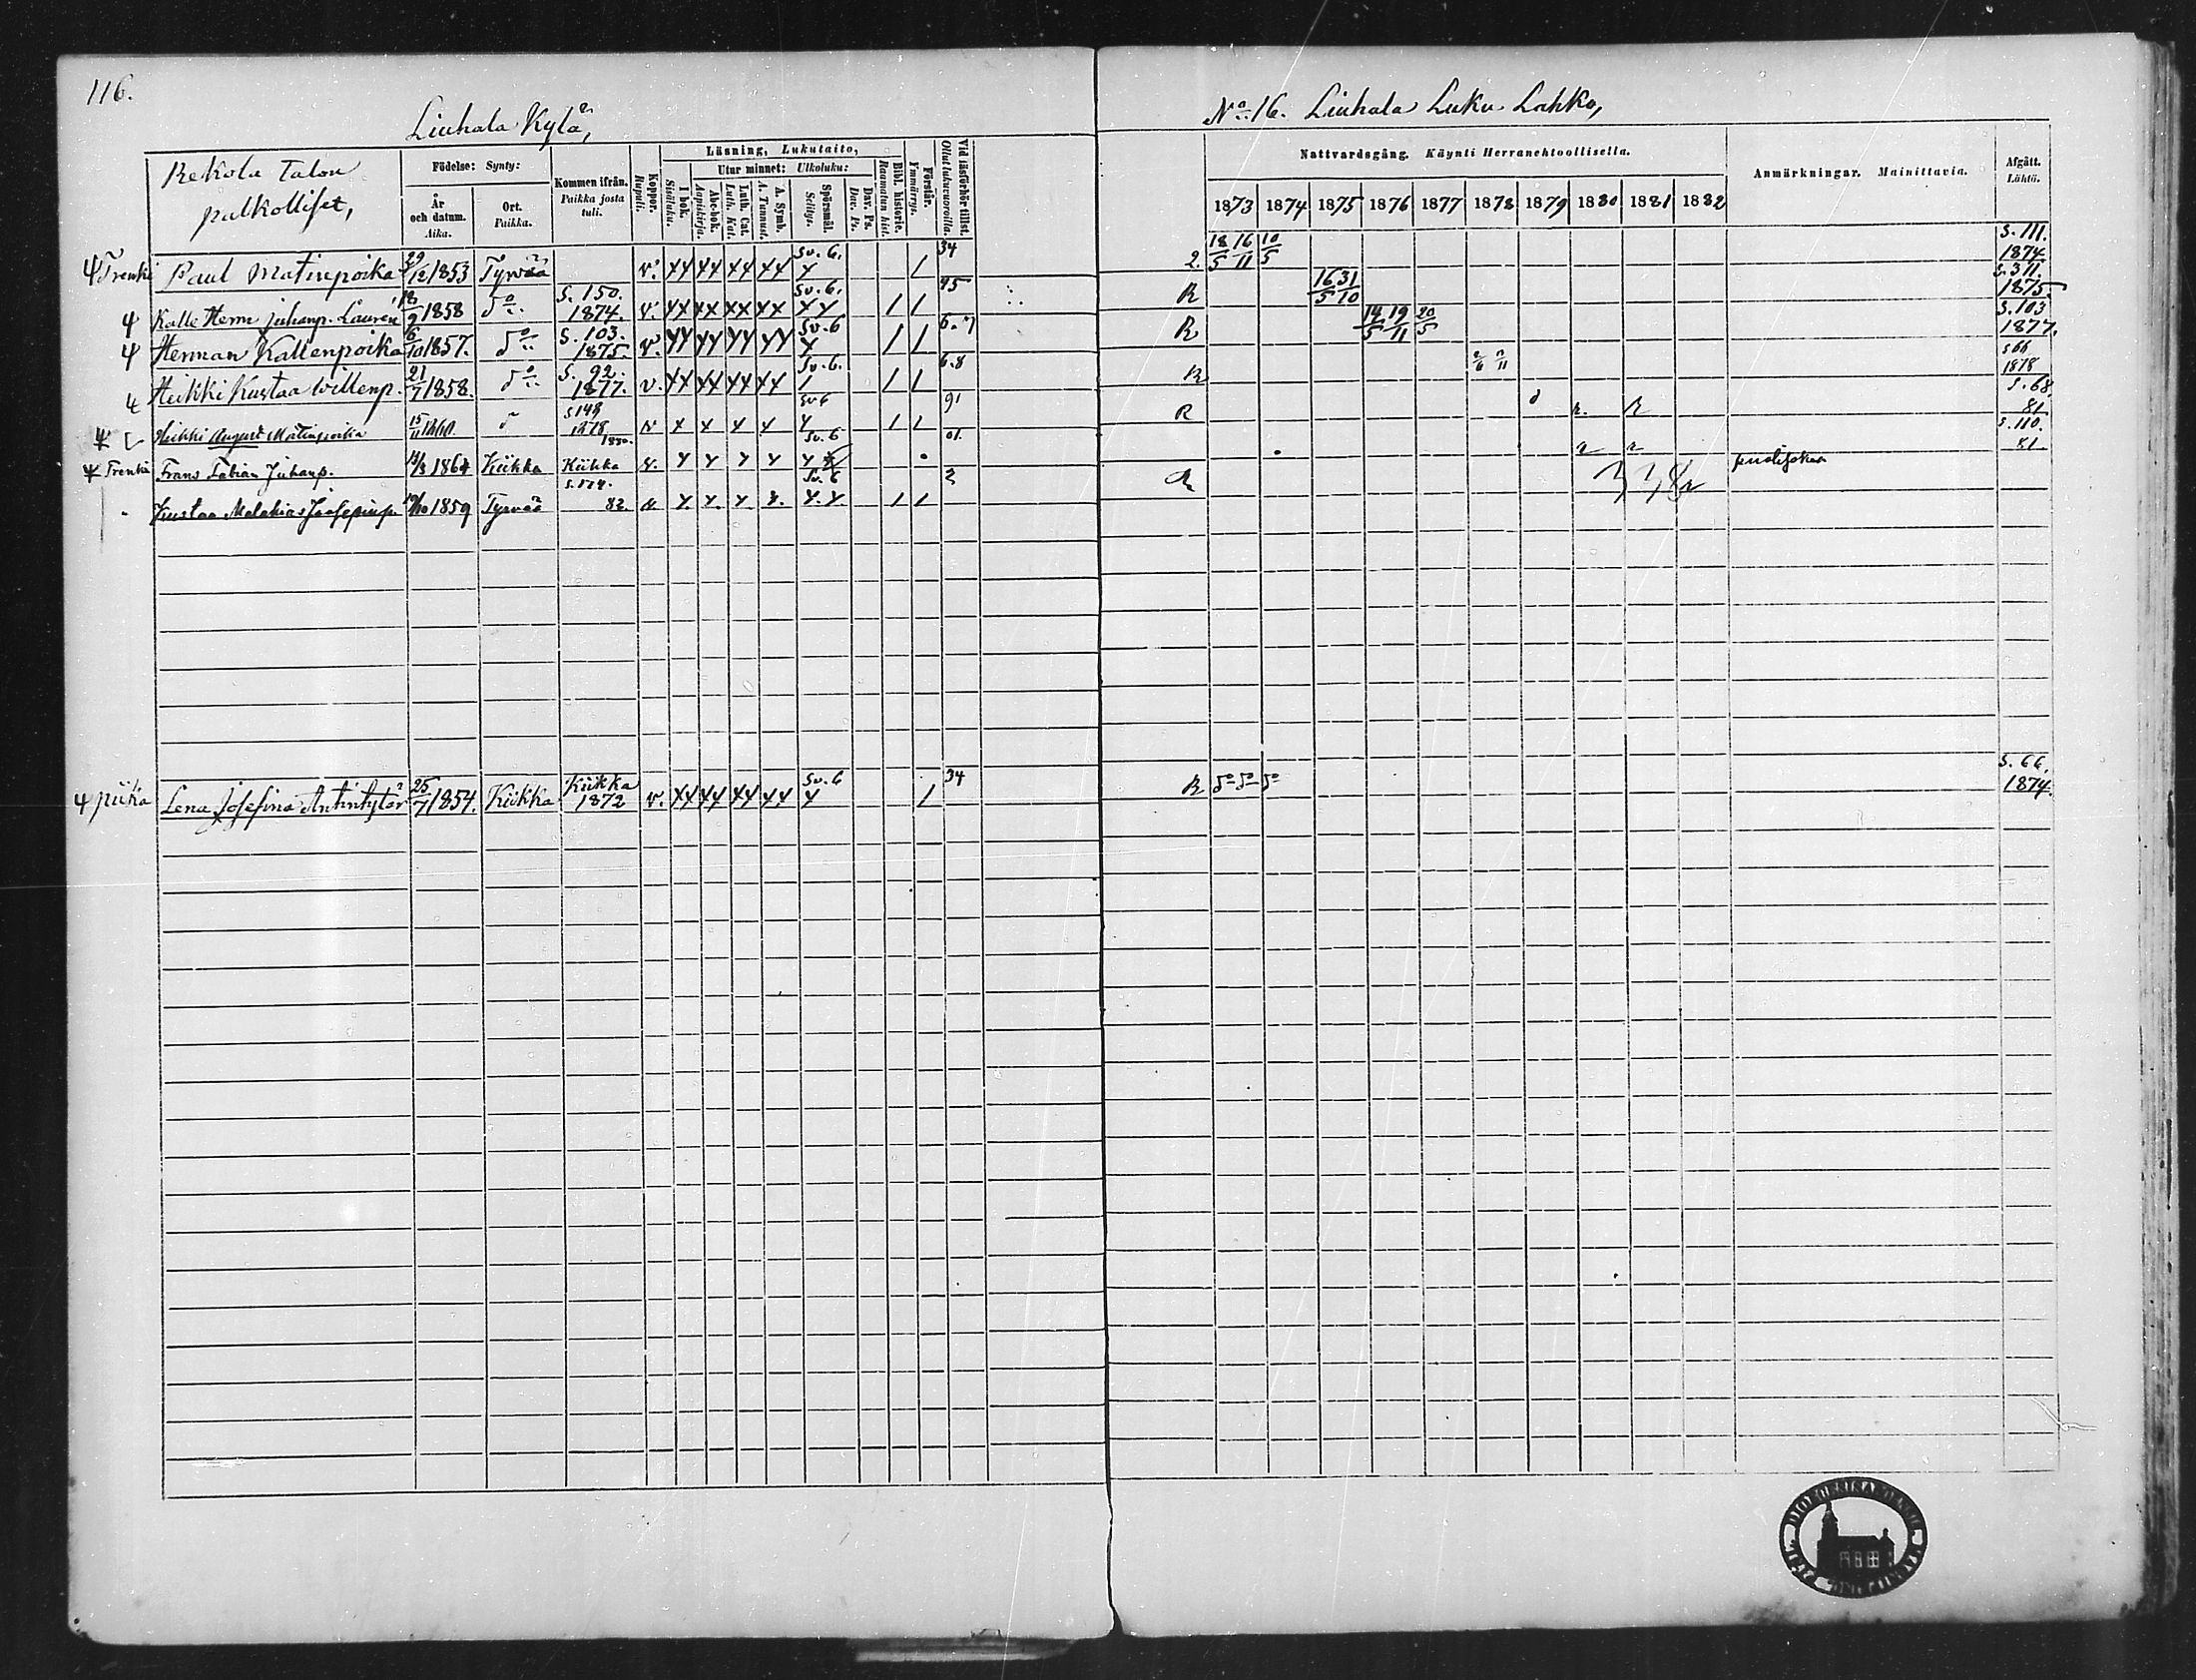 116.
Liuhala Kylä,
No 16. Liuhala Luku Lahko,
Rekola talon
palkolliset,
Födelse: Synty:
År och datum. Aika.
Ort. Paikka.
Kommen ifrån. Paikka josta tuli.
Koppor. Rupuli.
Läsning, Lukutaito,
I bok. Sisäluku.
Utur minnet: Ulkoluku:
Abc-bok. Aapiskirja.
Luth. Cat. Luth. Kat.
A. Symb. A. Tunnust.
Spörsmål. Selitys.
Dav. Ps. Dav. Ps.
Bibl. historie. Raamatun hist.
Förstår. Ymmärrys.
Vid läsförhör tillst. Ollut lukuvuoroilla.
Nattvardsgång. Käynti Herranehtoollisella.
1873 1874 1875 1876 1877 1878 1879 1880 1881 1882
Anmärkningar. Mainittavia.
Afgått. Lähtö.
Trenki Paul Matinpoika 29/12 1853 Tyrvää v. Sv. 6. 34 2. 18/5 16/11 10/5 S. 111. 1874
Kalle Herm Juhanp. Lauren 1858 do S. 150. 1874. v. Sv. 6. R 16/5 31/10 S. 311. 1875
Herman Kallenpoika 6/10 1857. do S. 103. 1875. v. Sv. 6 R 14/5 19/11 20/5 S. 103 1877.
Heikki Kustaa Willenp. 21/7 1858. do S. 92. 1877. v. Sv. 6. 6.8 R S 66 1878
Heikki August Matinpoika 15/11 1860. S 149 1878 v Sv 6 91 R S. 68. 81
Trenki Frans Fabian Juhanp. 1864 Kiikka 1880. Kiikka v. Sv. 6 01. S. 110. 81.
Kustaa Malakias Joosepinp. 1859 Tyrvää 82. v. Sv. 6
piika Lena Josefina Antintytär 25/7 1854. Kiikka Kiikka 1872 v. Sv. 6 34 R do do do S. 66. 1874.